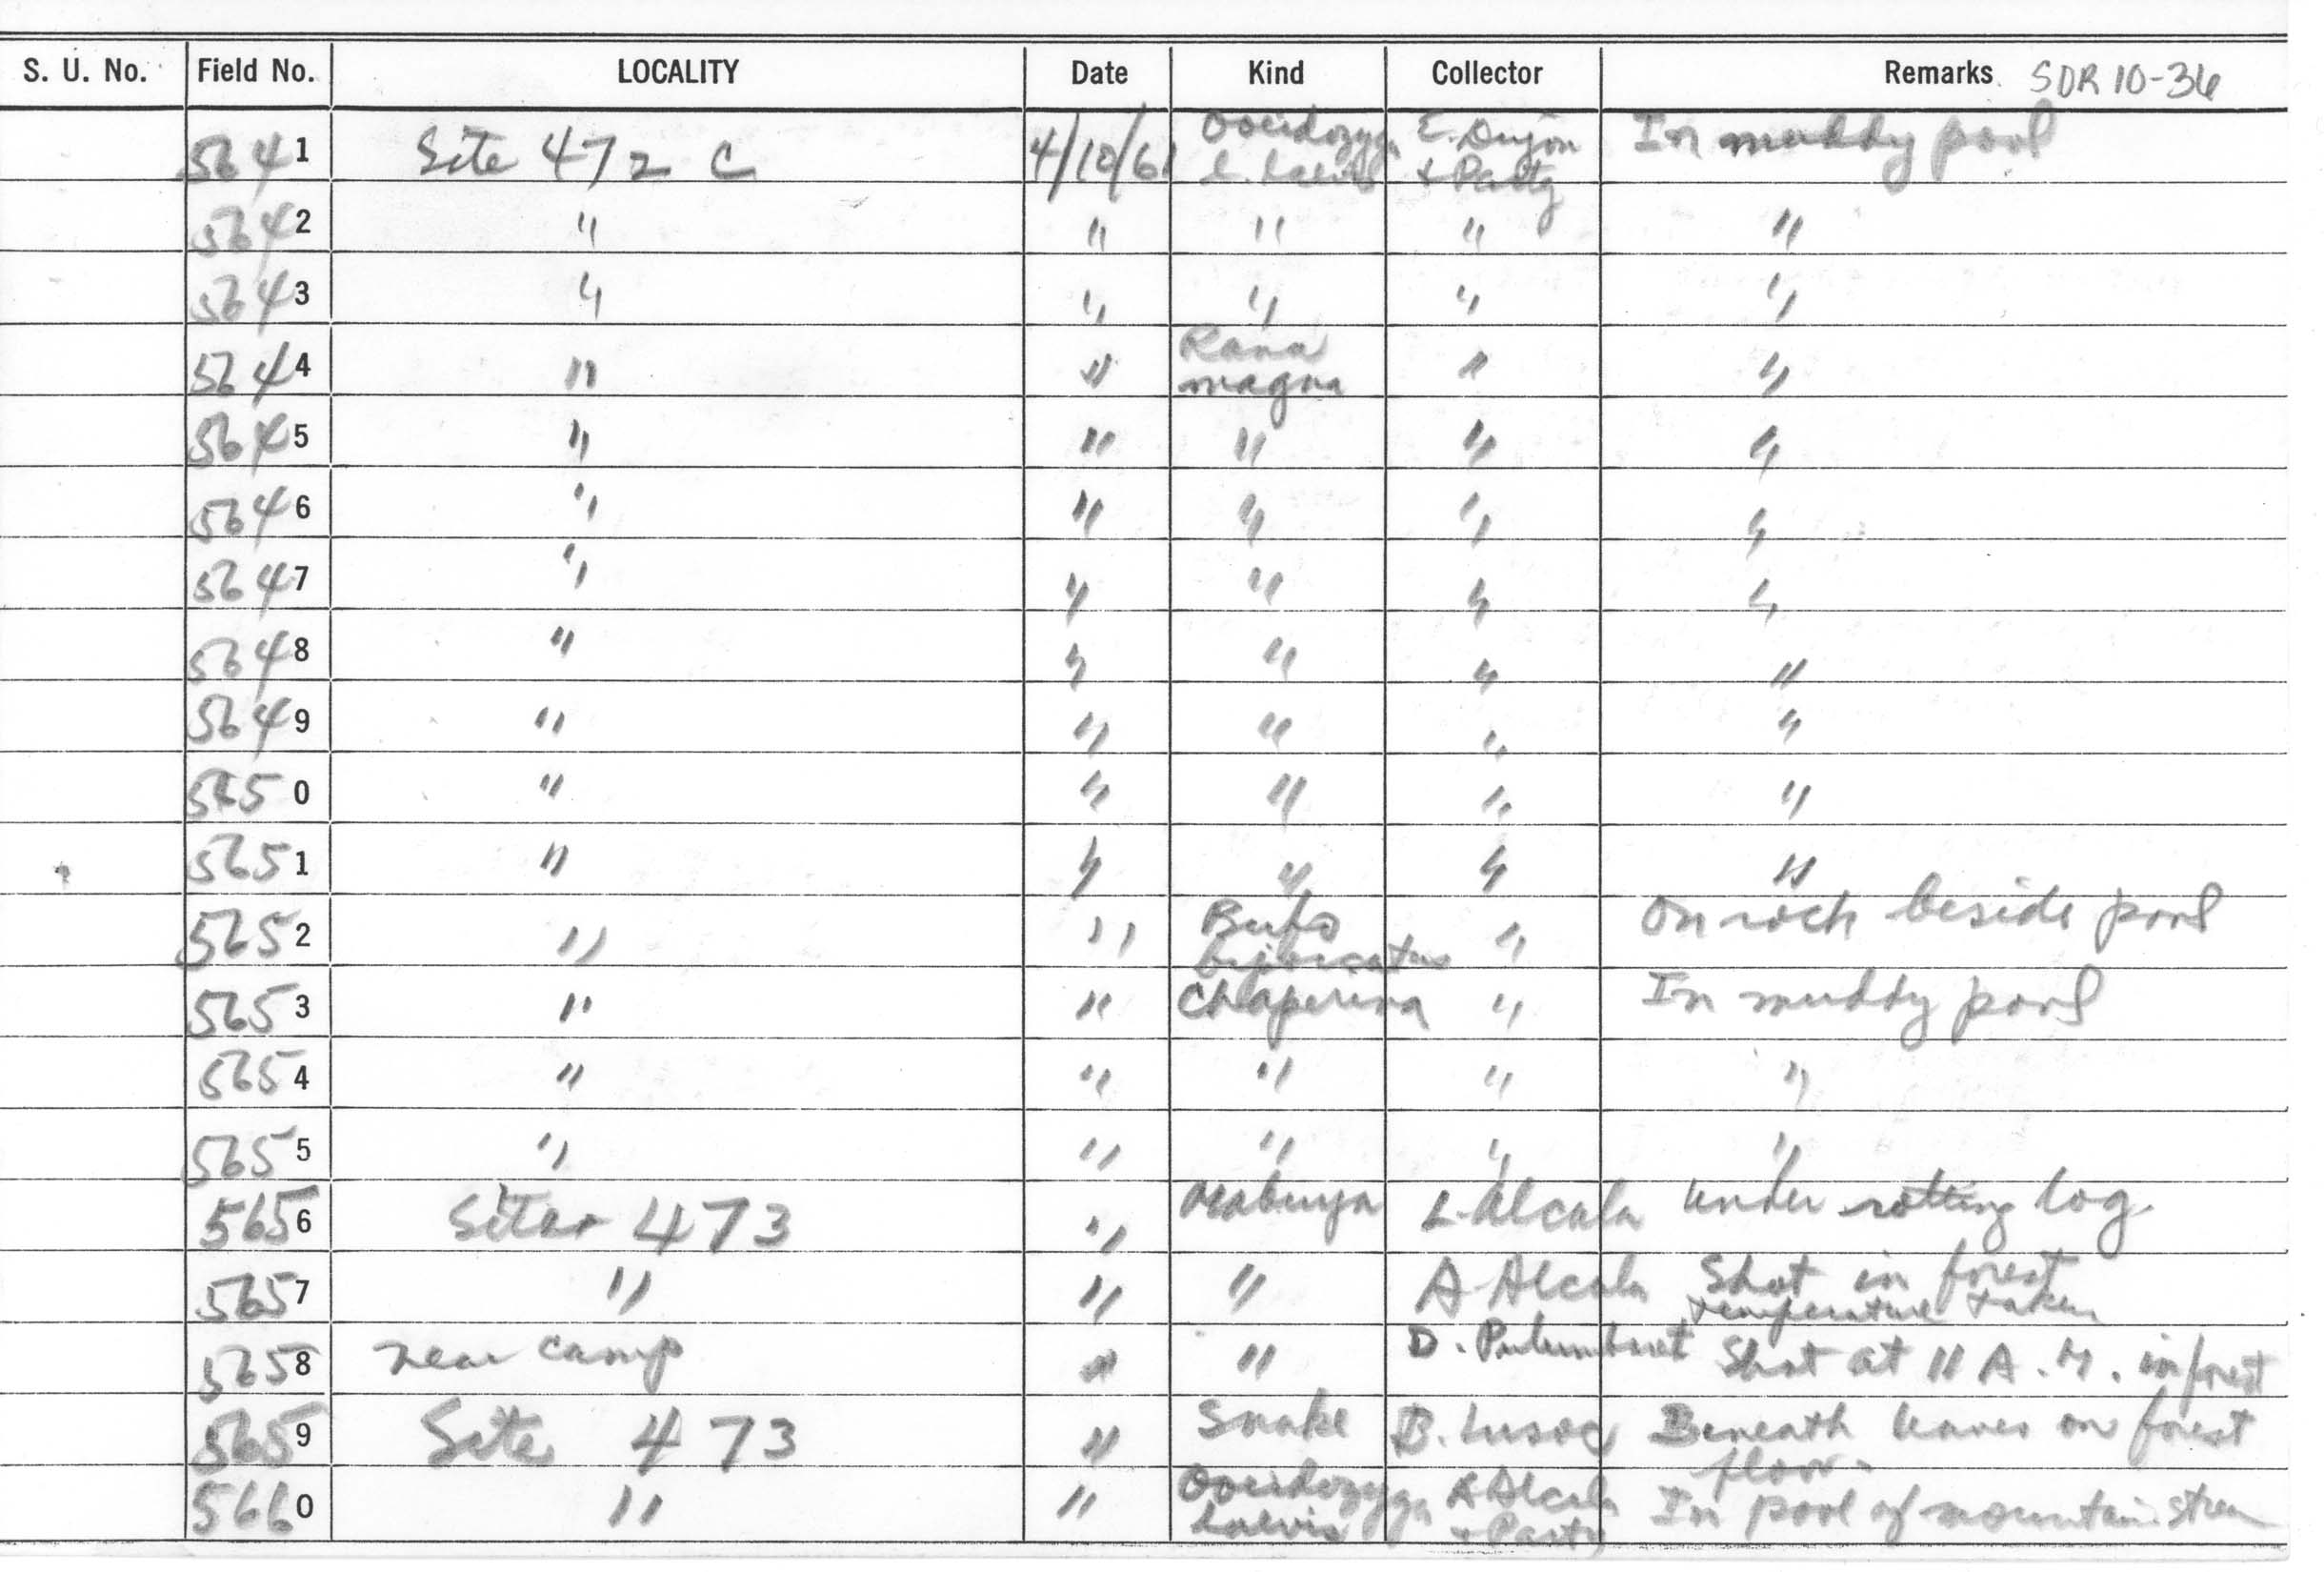 S. U. No. Field No. LOCALITY Date Kind Collector Remarks SDR 10-36
5641 Site 472 C 4/10/61 Ooeidozyga l. laevis E. Dujon & Party In muddy pool
5642 " " " " "
5643 " " " " "
5644 " " Rana magna " "
5645 " " " " "
5646 " " " " "
5647 " " " " "
5648 " " " " "
5649 " " " " "
5650 " " " " "
5651 " " " " "
5652 " " Bufo biporcatus " On rock beside pool
5653 " " Chaperina " In muddy pool
5654 " " " " "
5655 " " " " "
5656 Site 473 " Mabuya L. Alcala under rotting log.
5657 " " " A. Alcala Shot in forest temperature taken
5658 near camp " " D. Shot at 11 A.M. in forest
5659 Site 473 " Snake B. Lusoc Beneath leaves on forest floor.
5660 " " Ooeidozyga laevis A. Alcala & Party In pool of mountain stream